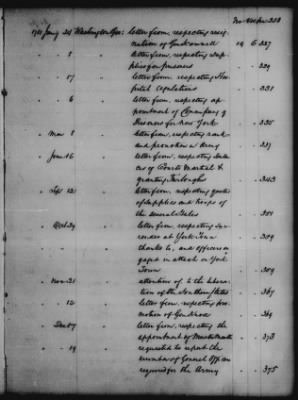 1781 Jany 24 Washington Geo: letter from, respecting resig-
nation of Genl Sonnell 19 6 327
" 8 " letter from, respecting sup-
plies for prisoners " 329
" 17 " letter from, respecting Hos-
pital regulations " 331
" 6 " letter from, respecting ap-
pointment of Commissary of
Prisoners for New York " 335
Mar 8 " letter from, respecting rank
and promotion in Army " 337
June 16 " letter from, respecting
of Courts Martial &
granting Furloughs " 343
Sep 12 " letter from, respecting quotas
of supplies and troops of
the several States " 351
Octr 29 " letter from, respecting Sur-
render at York Town
thanks to, and officers en-
gaged in attack on York
Town " 359
Nov 21 " attention of to the
tion of the Southern States " 367
" 12 " letter from, respecting pro-
motion of Genl Knox " 369
Decr 17 " letter from, respecting the
appointment of " 373
" 19 " requested to report the
number of General Officers
required for the Army " 375